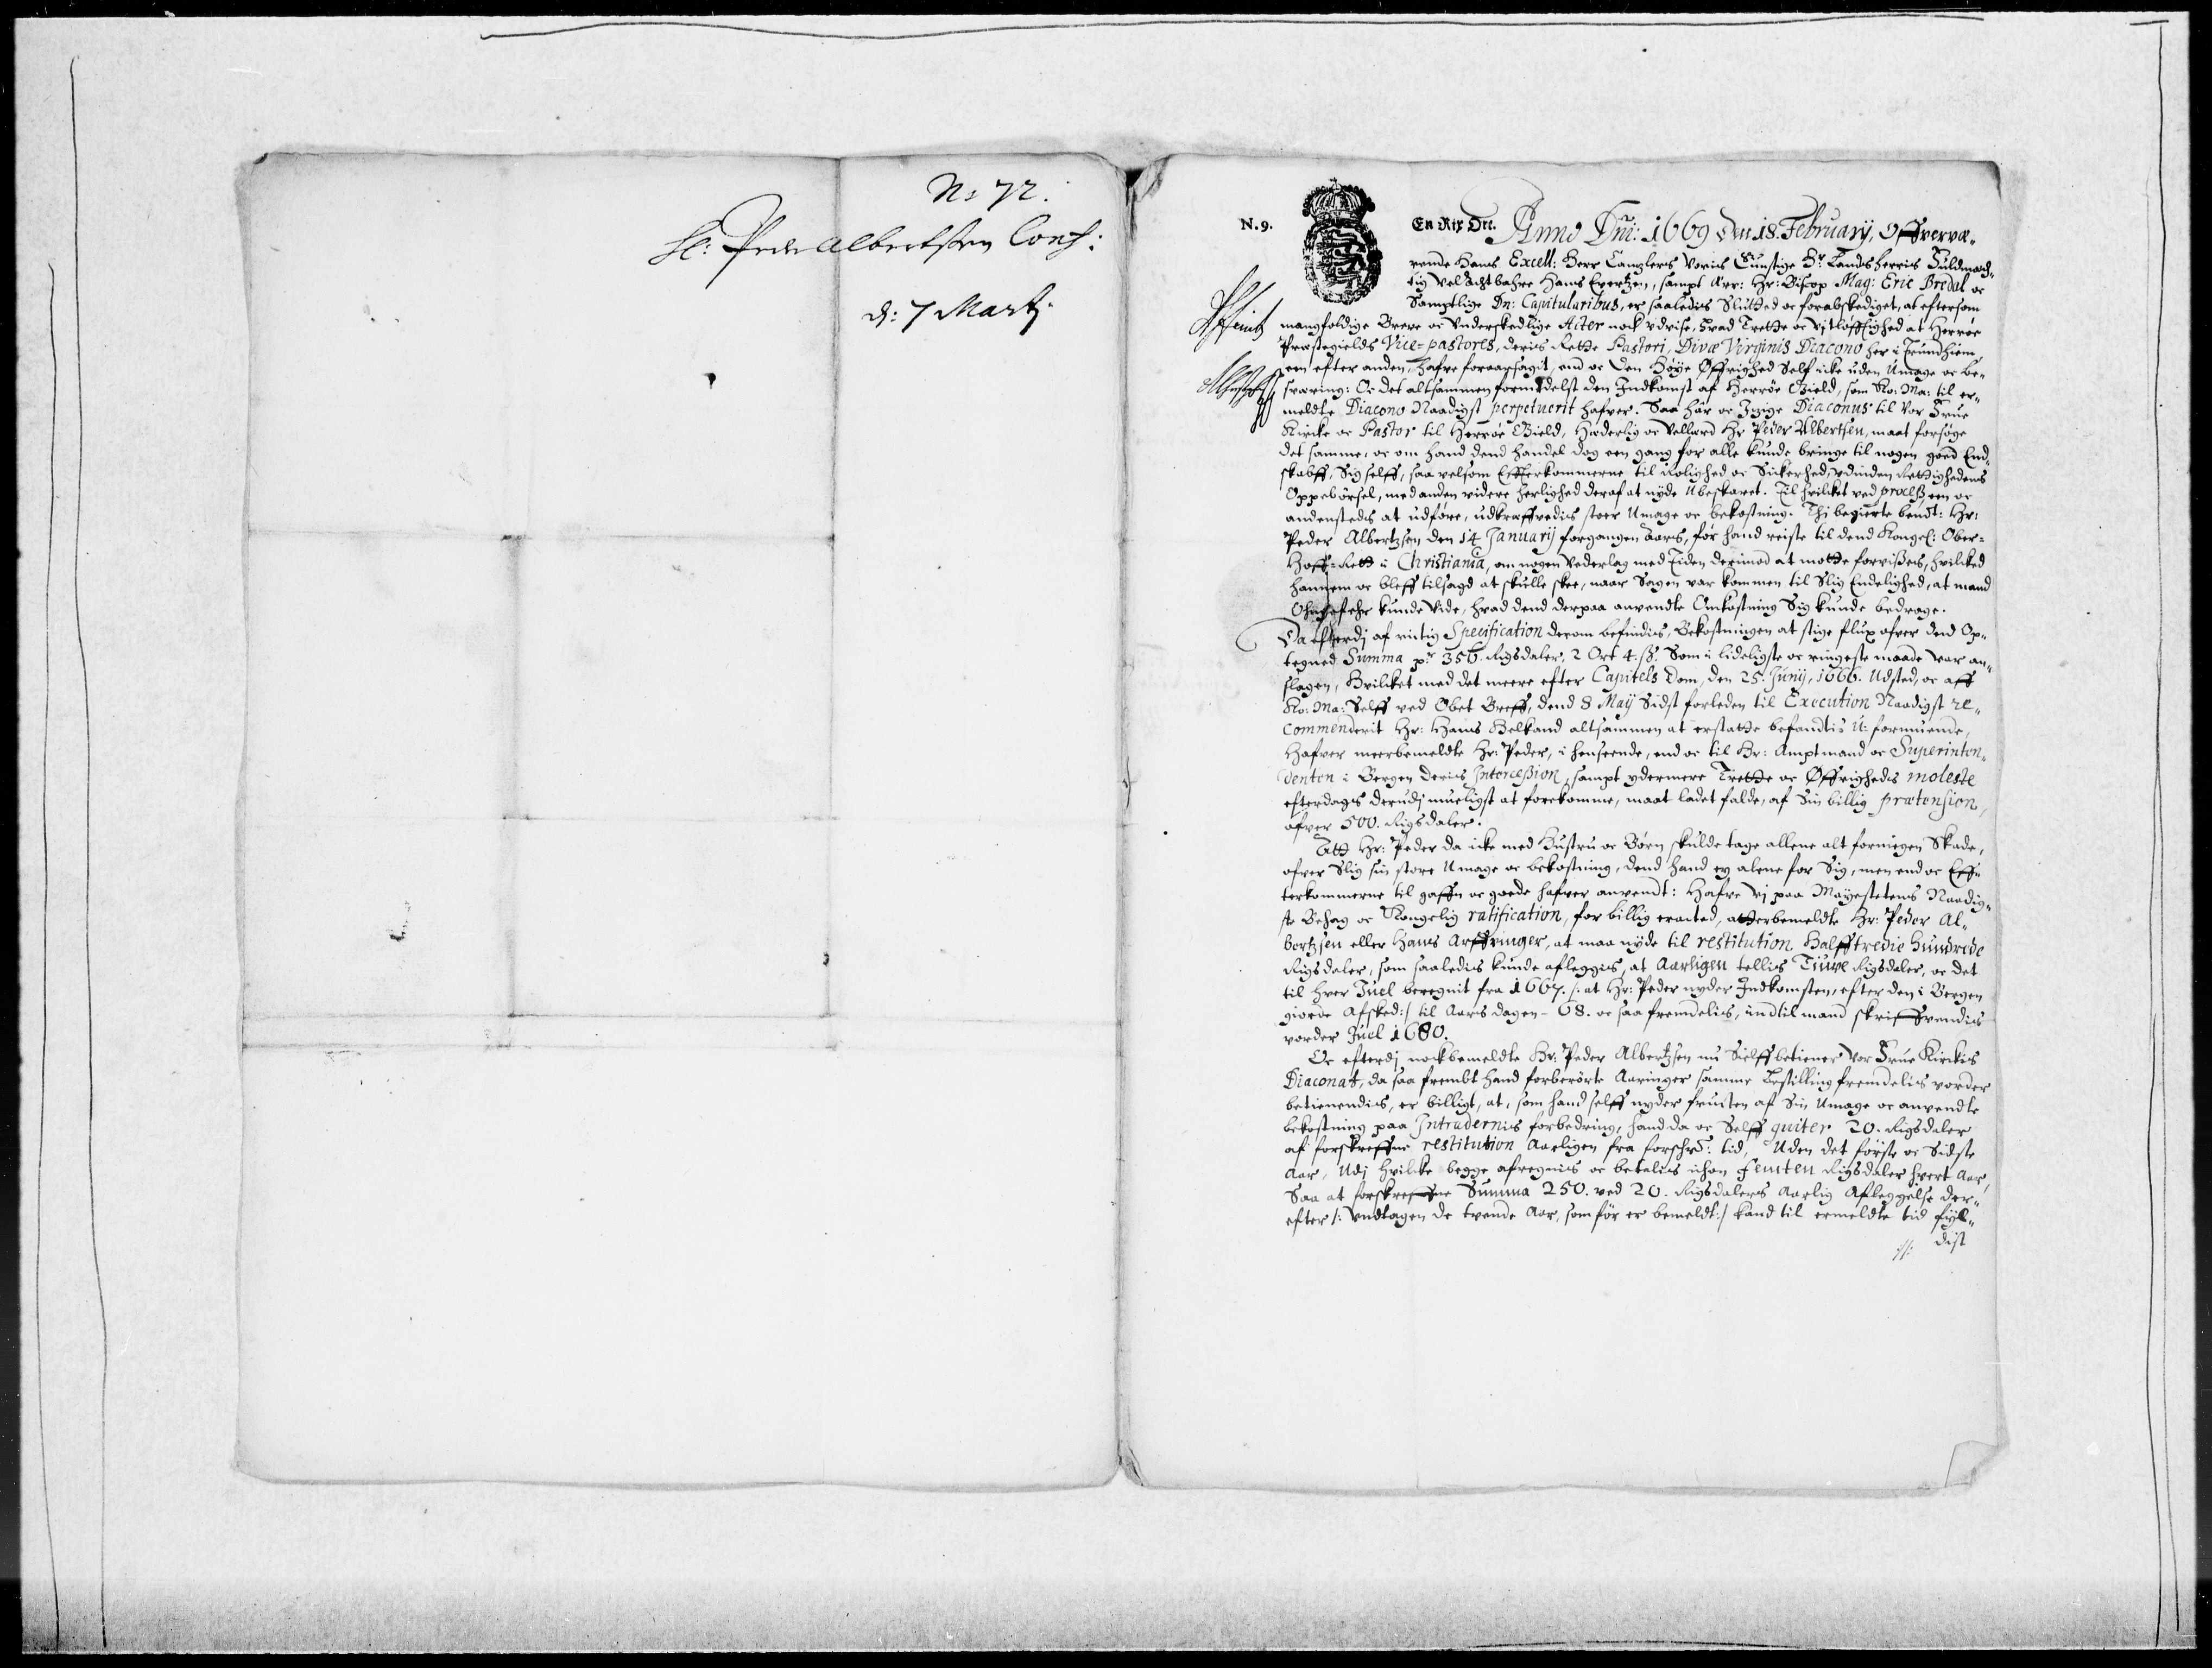 No 72.
Hr: Peder Albertssen Conf:
d: 7 Marti.
N. 9.
En Rix Ort.
Anno Dni: 1669 Den 18. February, Offververæ-
rende Hans Excell: Herr Canzlers Voris Gunstige Hr. Landsherris Fuldmæch-
tig Velacht bahre Hans Evertzen, sampt Ærv: Hr: Biscop Mag: Eric Bredal oc
Samptlige Dn: Capitularibus, er saaledis Slutted oc forabskediget, at eftersom
mangfoldige Breve oc Underskedlige Acter nock udvise, hvad Trette oc vitløfftighed at Herrøe
Præstegields Vice-pastores, deris Rette Pastori, Divæ Virginis Diacono her i Trundhiem,
een efter anden, hafve foraarsagit, end oc Den Høye Øffrighed Self icke uden Umage oc be-
sværing: Oc det altsammen formedelst den Indkomst af Herrøe Gield, som Ko: Ma: til er-
meldte Diacono Naadigst perpetuerit hafver. Saa har oc Itzige Diaconus til Vor Frue
Kircke oc Pastor til Herrøe Gield, Hæderlig oc Vellærd Hr Peder Albertsen, maat forsøge
det samme, oc om hand dend handel dog een gang for alle kunde bringe til nogen goed End-
skabff, Sig selff, saa velsom Efterkommerne til Rolighed oc Sickerhed, udinden Rettighedens
Oppebørsel, med anden videre herlighed deraf at nyde Ubeskaret. Til hvilcket ved procells een oc
andenstedes at udføre, udkræffvedis stoer Umage oc bekostning. Thi begierte bemt: Hr:
Peder Albertzsen den 14 January forgangen Aars, før hand reiste til dend Kongel: Ober-
Hoff-Rett i Christiania, om nogen Vederlag med Tiden derimod at motte forvisses, hvilcked
hannem oc bleff tilsagd at skulle skee, naar Sagen var kommen til Slig Endelighed, at mand
Ohngefehr kunde Vide, hvad dend derpaa anvendte Omkostning Sig kunde bedrage.
Da efterdj af rictig Specification derom befindis, Bekostningen at stige flux ofver dend Op-
tegned Summa pr. 356. Rigsdaler, 2 Ort 4. ß. Som i lideligste oc ringeste maade var an-
slagen, Hvilcket med det meere efter Capitels Dom, den 25. Junij, 1666. Udsted, oc aff
Ko: Ma: Selff ved Obet Breff, dend 8 Maij Sidst forleden til Execution Naadigst re-
commenderit Hr: Hans Helkand altsammen at erstatte befandtis U-formuende,
Hafver meerbemeldte Hr: Peder, i henseende, end oc til Hr: Amptmand oc Superinten-
denten i Bergen deris Intercession, sampt ydermere Trette oc Øffrigheds moleste
efterdages derudj mueligst at forekomme, maat ladet falde, af Sin billig prætension,
ofver 500. Rigsdaler.
Att Hr: Peder da icke med Hustru oc Børn skulde tage allene alt formegen Skade,
ofver Slig sin store Umage oc bekostning, dend hand ey alene for Sig, men end oc Effe
terkommerne til gaffn oc goede hafver anvendt: Hafve vj paa Mayestetens Naadig-
ste Behag oc Kongelig ratification, for billig eracted, atterbemeldte Hr: Peder Al-
bertzsen eller Hans Arffvinger, at maa nyde til restitution Halfftredie hundrede
Rigsdaler, som saaledis kunde afleggis, at Aarligen tellis Tiuve Rigsdaler, oc det
til hver Juel beregnit fra 1667. /: at Hr: Peder nyder Indkomsten, efter den i Bergen
giorde Afsked :/ til Aars dagen - 68. oc saa fremdelis, indtil mand skriffvendis
vorder Juel 1680.
Oc efterdj nockbemeldte Hr: Peder Albertzsen nu Sielff betiener Vor Frue Kirckis
Diaconat, da saa frembt hand forberørte Aaringer samme Bestilling fremdelis vorder
betienendis, er billigt, at, som hand selff nyder fructen af Sin Umage oc anvendte
bekostning paa Intradernis forbedring, hand da oc Selff quiter 20. Rigsdaler
af forskreffne restitution Aarligen fra forschr: tid, Uden det første oc Sidste
Aar, Udj hvilcke begge afregnis oc betalis ichon femten Rigsdaler hvert Aar,
Saa at forskreffne Summa 250. ved 20. Rigsdalers Aarlig Afleggelse der-
efter /: Undtagen de tvende Aar, som før er bemeldt :/ kand til ermeldte tid fyl-
dist